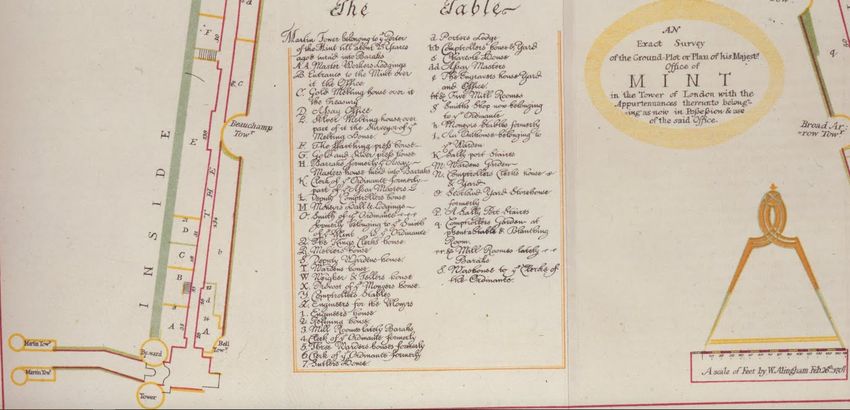 The Table
Martin Tower belong to yᵉ Porter
of the Mint till about 25 Yeares
ago & turn'd into Baraks
A.A. Master Workers Lodgings
B. Entrance to the Mint over
it the Office
C. Gold Melting house over it
the Treasury
D. Assay Office
E. Silver Melting house, over
part of it the Surveyor of yᵉ
Melting House
F. The Farthing press house
G. Gold and Silver press house
H. Baraks formerly yᵉ Assay
Masters house turn'd into Baraks
K. Clerk of yᵉ Ordinance formerly
part of yᵉ Assay Masters
L. Deputy Comptrollers house
M. Moneyers Hall & Lodgings
O. Smith of yᵉ Ordinance
formerly belonging to yᵉ Smith
of yᵉ Mint
Q. The Kings Clerks house
R. Melters house
S. Deputy Wardens house
T. Wardens house
W. Weigher & Tellers house
X. Provost of yᵉ Monyers house
Y. Comptrollers Stables
Z. Engineers for the Monyrs
1. Engineers house
2. Refining house
3. Mill Rooms lately Baraks
4. Clerk of yᵉ Ordinance formerly
5. Three Warders houses formerly
6. Clerk of yᵉ Ordinance formerly
7. Sutlers House
a Porters Lodge
bb Comptrollers house & Yard
c Charcole House
dd Assay Masters
e The Engravers house Yard
and Office
Five Mill Rooms
g Smiths Shop now belonging
to yᵉ Ordinance
h Monyers Stables formerly
i. An Outhouse belonging to
yᵉ Warden
K Sally port Staires
m Wardens Garden
n Comptrollers Clerks house
& Yard
o Scotland Yard Storehouse
formerly
p. A Sally Port Staires
q Comptrollers Garden at
present a Stable & Blanching
Room
rr Mill Rooms lately
Baraks
S. Washouse to yᵉ Clerks of
the Ordinance
AN
Exact Survey
of the Ground-Plot or Plan of his Majestˢ
Office of
MINT
in the Tower of London with the
Appurtenances thereunto belong-
-ing as now in Possession & use
of the said Office.
Beauchamp
Towʳ
Broad Ar-
row Towʳ
INSIDE
THE
F
E
D
C
B
A
A
Martin Towʳ
Martin Towʳ
By-ward
Tower
Bell
Towʳ
A scale of Feet by W. Allingham Feb: 26ᵗʰ 1701